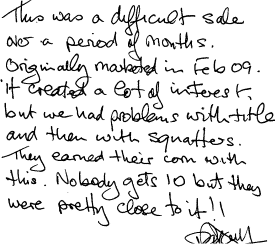 This was a difficult sale
over a period of months.
Originally marketed in Feb 09.
it created a lot of interest,
but we had problems with title
and then with squatters.
They earned their corn with
this. Nobody gets 10 but they
were pretty close to it!!